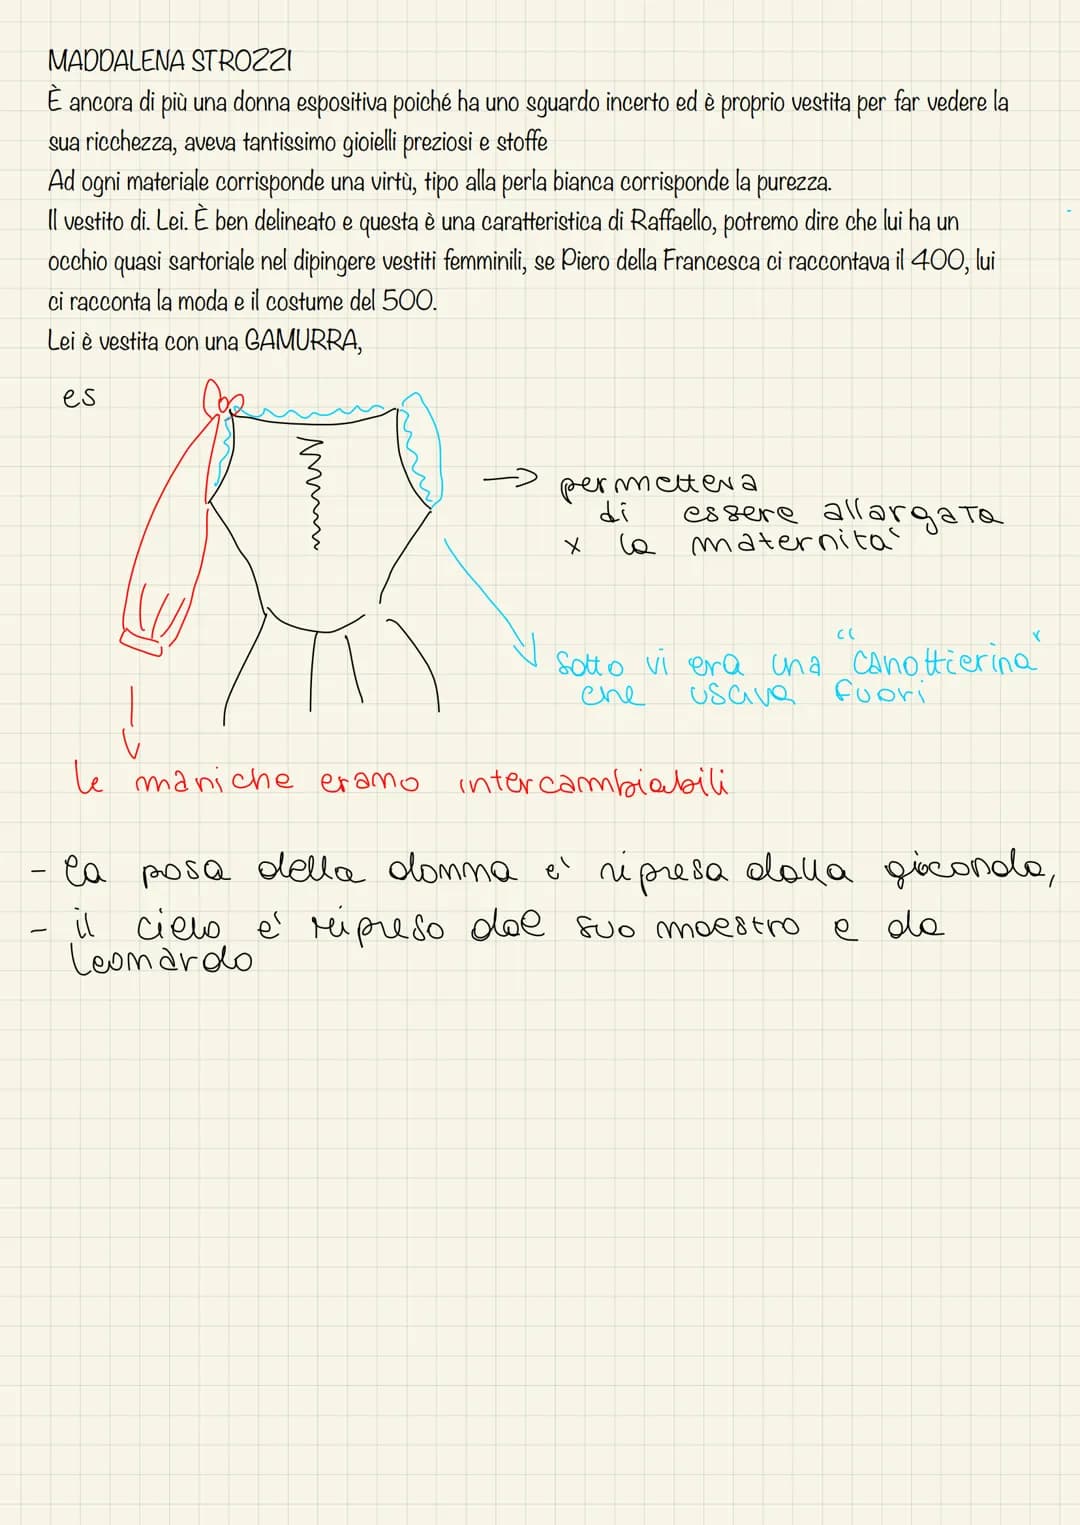 MADDALENA STROZZI
È ancora di più una donna espositiva poiché ha uno sguardo incerto ed è proprio vestita per far vedere la
sua ricchezza, aveva tantissimo gioielli preziosi e stoffe
Ad ogni materiale corrisponde una virtù, tipo alla perla bianca corrisponde la purezza.
Il vestito di. Lei. È ben delineato e questa è una caratteristica di Raffaello, potremo dire che lui ha un
occhio quasi sartoriale nel dipingere vestiti femminili, se Piero della Francesca ci raccontava il 400, lui
ci racconta la moda e il costume del 500.
Lei è vestita con una GAMURRA,
es
-> permetteva
di essere allargata
x la maternita'
sotto vi era una "canottierina"
che usciva fuori
le maniche erano intercambiabili
- la posa della donna e' ripresa dalla gioconda,
- il cielo e' ripreso dal suo maestro e da
Leonardo